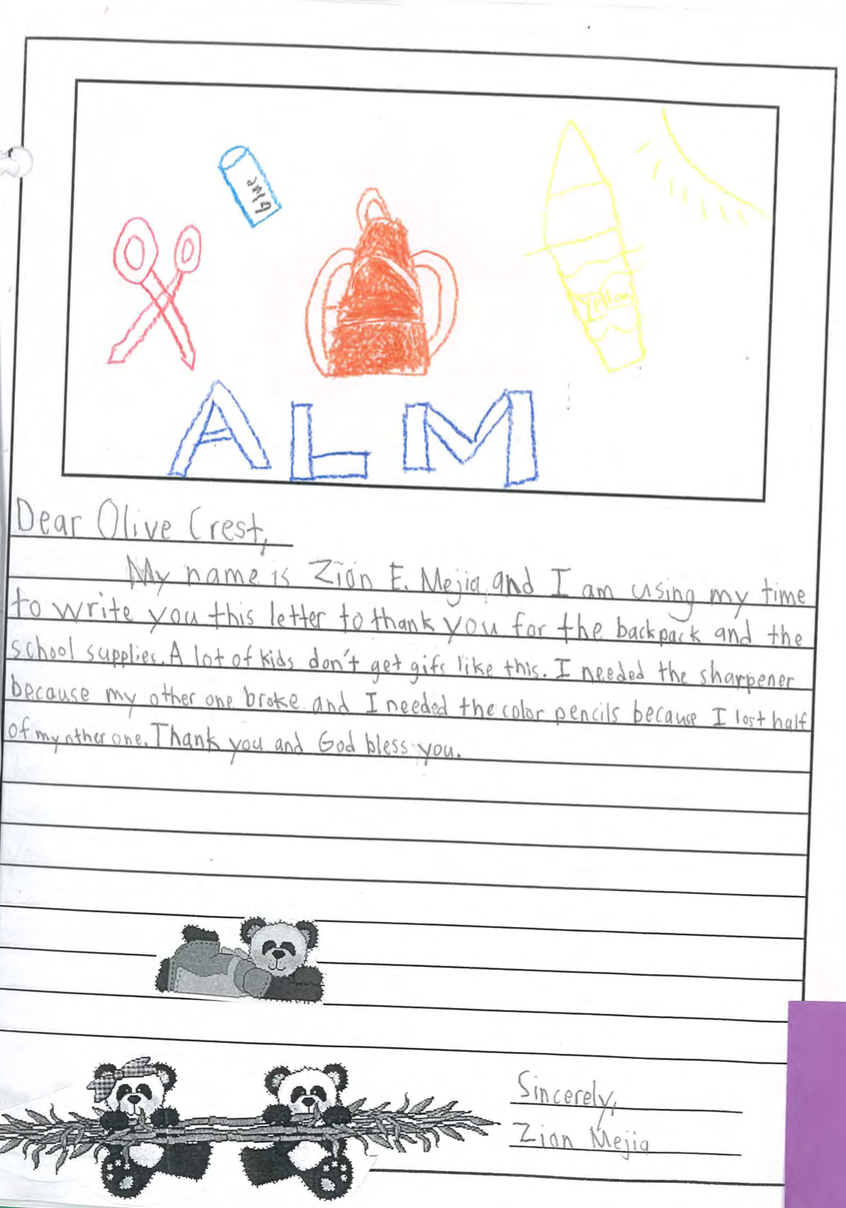 blue
Yellow
ALM
Dear Olive Crest,
My name is Zion E. Mejia, and I am using my time
to write you this letter to thank you for the backpack and the
school supplies. A lot of kids don't get gifs like this. I needed the sharpener
because my other one broke and I needed the color pencils because I lost half
of my other one. Thank you and God bless you.
Sincerely,
Zion Mejia